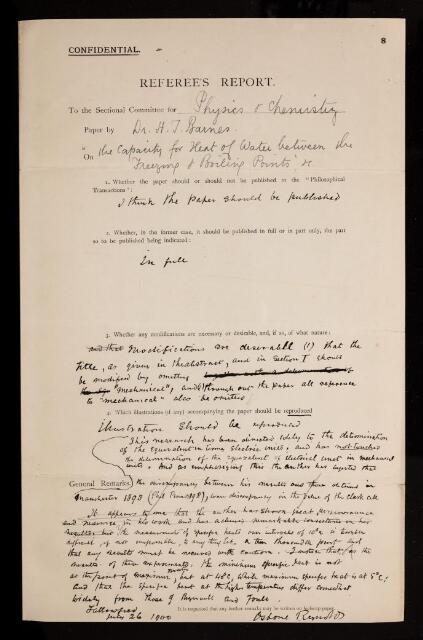 8
CONFIDENTIAL.
REFEREE'S REPORT.
To the Sectional Committee for Physics & Chemistry
Paper by Dr. H. T. Barnes.
On "the Capacity for Heat of Water between the
Freezing & Boiling Points" &c
1. Whether the paper should or should not be published in the "Philosophical
Transactions":
I think the paper should be published
2. Whether, in the former case, it should be published in full or in part only, the part
so to be published being indicated:
In full
3. Whether any modifications are necessary or desirable, and, if so, of what nature:
Modifications are desirable (1) that the
title, as given in the abstract, and in Section I should
be modified by omitting
"mechanical", and throughout the paper all reference
to "mechanical" also be omitted
4. Which illustrations (if any) accompanying the paper should be reproduced
Illustration should be reproduced
This research has been directed solely to the determination
of the equivalent in some Electric units. and has not touched
the determination of the equivalent of electrical unit in mechanical
units. And as emphasizing this the author has
General Remarks. the discrepancy between his results and those obtained in
Manchester 1898 discrepancy in the value of the clark cell
It appears to me that the author has shown great perseverance
and in his work and has achieved remarkable consistency in his
results but the measurement of specific heats over intervals of 10°C is
if not impossible to a ten thousandth part and
that any results must be received with caution. I notice that, as the
results of these experiments, the minimum specific heat is not
at the point of maximum but at 40°C, while maximum specific heat is at 5°C,
and that the specific heat at the higher temperatures differs somewhat
widely from those of Regnault and Joule.
It is requested that any further remarks may be written on foolscap paper.
Fallowfield
July 26 1900 Osborne Reynolds